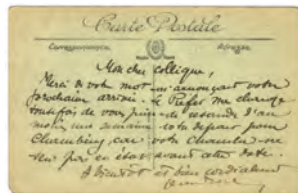 Carte Postale
Correspondance. Adresse.
Mon cher collègue,
Merci de votre mot m'annonçant votre
prochaine arrivée. Le Préfet me charge
toutefois de vous prier de retarder d'au
moins une semaine votre départ pour
car votre
pas en état avant cette date.
A bientôt et bien cordialement